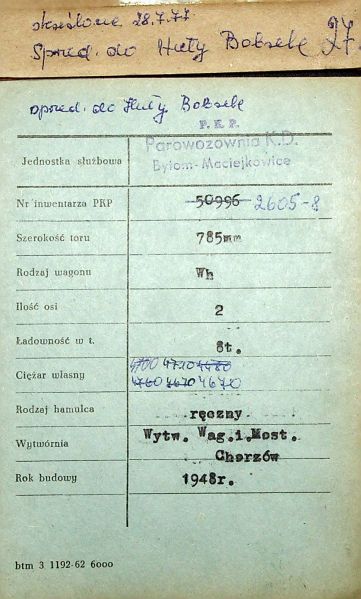 skreślono 28.7.77
Sprzed. do Huty Bobrek 27
sprzed. do Huty Bobrek
P. K. P.
Parowozownia K.D.
Bytom-Maciejkowice
Jednostka służbowa
Nr inwentarza PKP 50996 2605-8
Szerokość toru 785mm
Rodzaj wagonu Wh
Ilość osi 2
Ładowność w t. 8t.
4700 4710 4480
Ciężar własny 4760 4670 4670
Rodzaj hamulca ręczny
Wytwórnia Wytw. Wag.i.Most.
Chorzów
Rok budowy 1948r.
btm 3 1192-62 6000